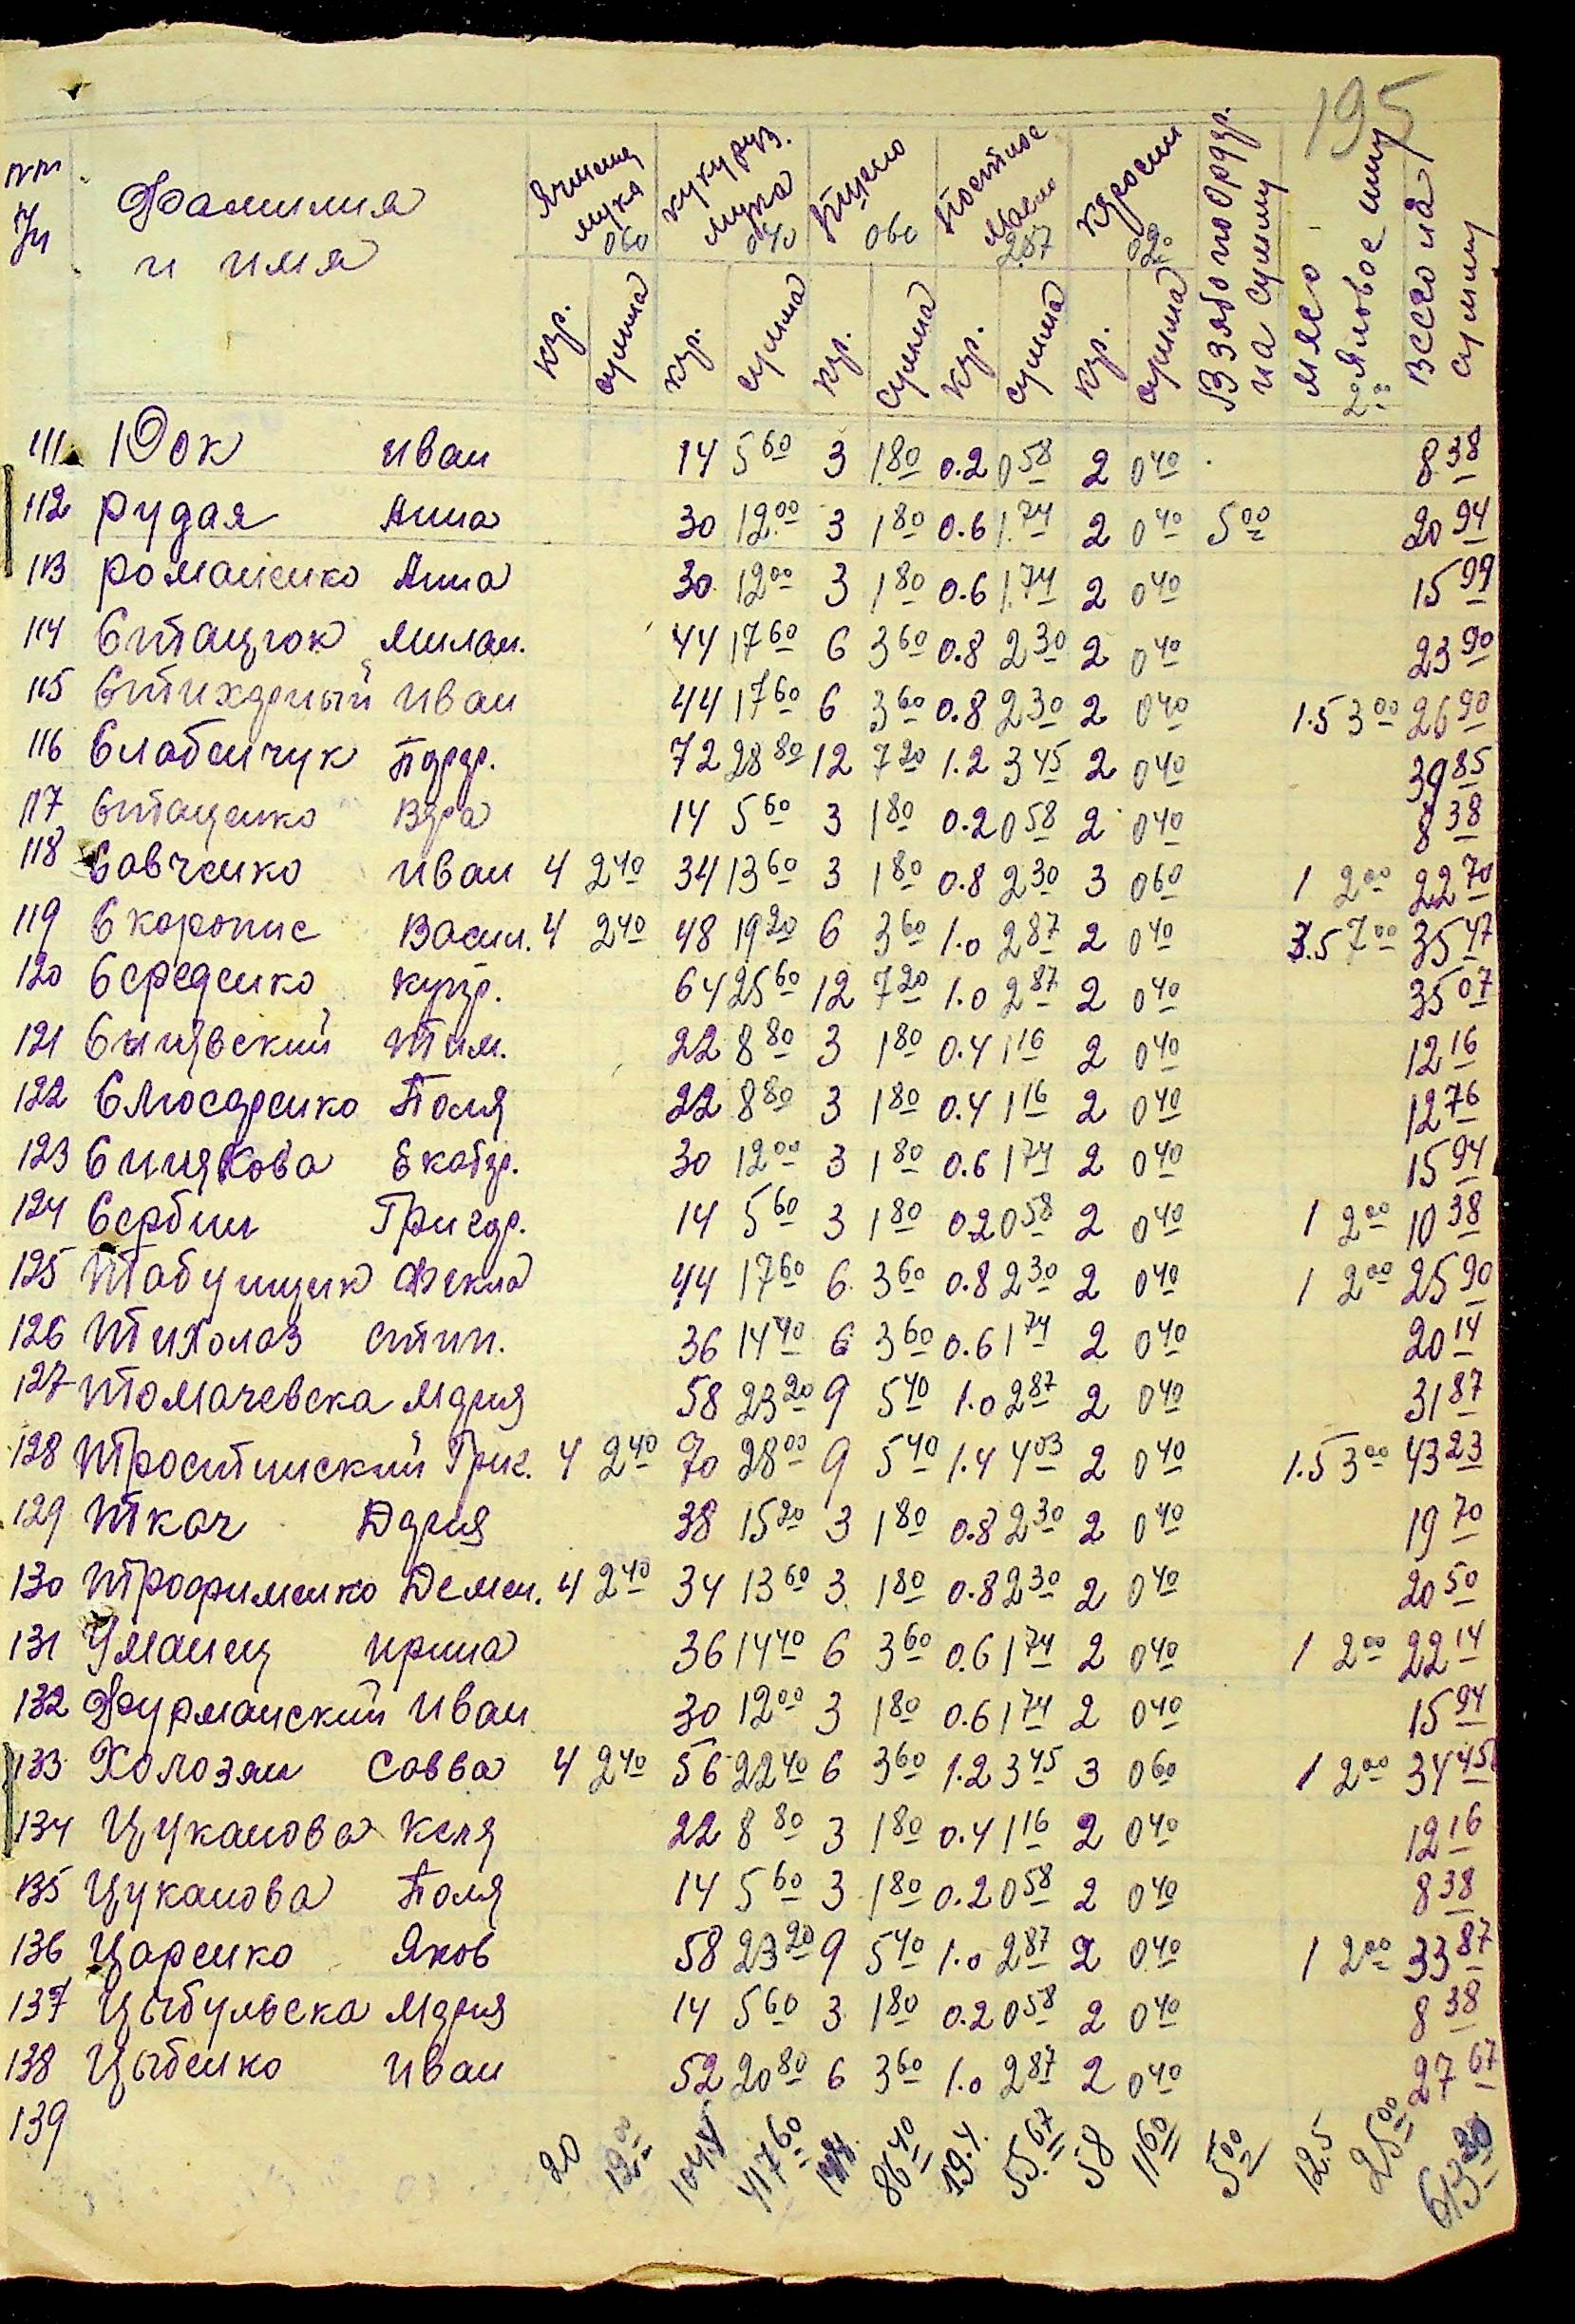 195
№№ п/п Фамилия и имя Ячмен мука 0 60 кукуруз. мука 0 40 Пшено 0 60 Постное масло 2.87 Кэросин 0 20 Взято по Ордэр. на сумму мясо Яловое 2 00 сумму Всего на сумму
кгр. сумма кгр. сумма кгр. сумма кгр. сумма кгр. сумма
111 Юок Иван 14 5 60 3 1 80 0.2 0 58 2 0 40 8 38
112 Рудая Анна 30 12 00 3 1 80 0.6 1.74 2 0 40 5 00 20 94
113 Романенко Анна 30 12 00 3 1 80 0.6 1.74 2 0 40 15 99
114 Стацюк Милан. 44 17 60 6 3 60 0.8 2 30 2 0 40 23 90
115 Стихэрный Иван 44 17 60 6 3 60 0.8 2 30 2 0 40 1.5 3 00 26 90
116 Слабенчук Пэдэр. 72 28 80 12 7 20 1.2 3 45 2 0 40 39 85
117 Стаценко Вэра 14 5 60 3 1 80 0.2 0 58 2 0 40 8 38
118 Савченко Иван 4 2 40 34 13 60 3 1 80 0.8 2 30 3 0 60 1 2 00 22 70
119 Скоропис Васил. 4 2 40 48 19 20 6 3 60 1.0 2 87 2 0 40 3.5 7 00 35 47
120 Середенко 64 25 60 12 7 20 1.0 2 87 2 0 40 35 07
121 Сынявский Тим. 22 8 80 3 1 80 0.4 1 16 2 0 40 12 16
122 Слюсаренко Поля 22 8 80 3 1 80 0.4 1 16 2 0 40 12 76
123 Синякова Екатэр. 30 12 00 3 1 80 0.6 1 74 2 0 40 15 94
124 Сербин Григэр. 14 5 60 3 1 80 0.2 0 58 2 0 40 1 2 00 10 38
125 Табунщик Фекла 44 17 60 6 3 60 0.8 2 30 2 0 40 1 2 00 25 90
126 Тихолаз Стип. 36 14 40 6 3 60 0.6 1 74 2 0 40 20 14
127 Томачевска Мария 58 23 20 9 5 40 1.0 2 87 2 0 40 31 87
128 Тростинский Григ. 4 2 40 70 28 00 9 5 40 1.4 4 03 2 0 40 1.5 3 00 43 23
129 Ткач Дария 38 15 20 3 1 80 0.8 2 30 2 0 40 19 70
130 Трофименко Демен. 4 2 40 34 13 60 3 1 80 0.8 2 30 2 0 40 20 50
131 Уманец Ирина 36 14 40 6 3 60 0.6 1 74 2 0 40 1 2 00 22 14
132 Фурманский Иван 30 12 00 3 1 80 0.6 1 74 2 0 40 15 94
133 Холозян Савва 4 2 40 56 22 40 6 3 60 1.2 3 45 3 0 60 1 2 00 34 45
134 Цуканова Келя 22 8 80 3 1 80 0.4 1 16 2 0 40 12 16
135 Цуканова Поля 14 5 60 3 1 80 0.2 0 58 2 0 40 8 38
136 Царенко Яков 58 23 20 9 5 40 1.0 2 87 2 0 40 1 2 00 33 87
137 Цыбульска Мария 14 5 60 3 1 80 0.2 0 58 2 0 40 8 38
138 Цыбенко Иван 52 20 80 6 3 60 1.0 2 87 2 0 40 27 67
139
20 12 00 1044 417 60 86 40 19.4 55.67 58 11 60 5 00 12.5 25 00 613 20